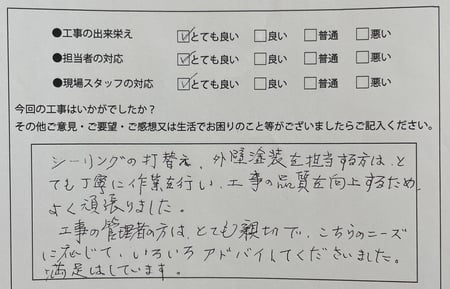 ●工事の出来栄え ☑とても良い □良い □普通 □悪い
●担当者の対応 ☑とても良い □良い □普通 □悪い
●現場スタッフの対応 ☑とても良い □良い □普通 □悪い
今回の工事はいかがでしたか？
その他ご意見・ご要望・ご感想又は生活でお困りのこと等がございましたらご記入ください。
シーリングの打替え、外壁塗装を担当する方は、と
ても丁寧に作業を行い、工事の品質を向上するため
よく頑張りました。
工事の管理者の方は、とても親切で、こちらのニーズ
に応じて、いろいろアドバイしてくださいました。
満足はしています。